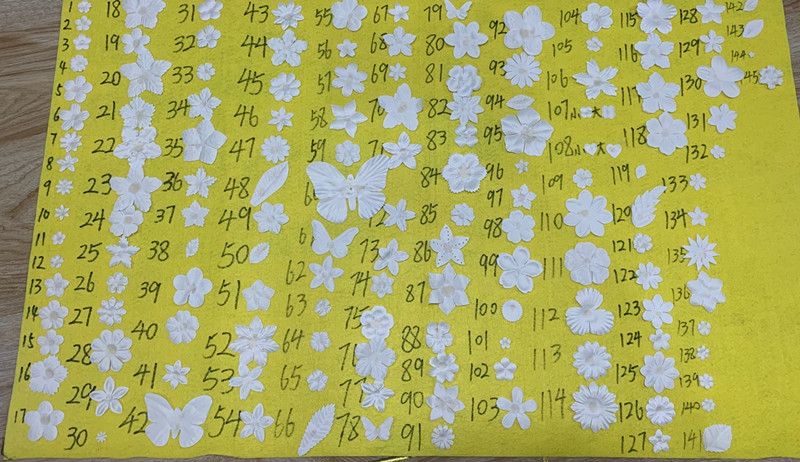 1
2
3
4
5
6
7
8
9
10
11
12
13
14
15
16
17
18
19
20
21
22
23
24
25
26
27
28
29
30
31
32
33
34
35
36
37
38
39
40
41
42
43
44
45
46
47
48
49
50
51
52
53
54
55
56
57
58
59
6
61
62
63
64
65
66
67
68
69
70
71
72
73
74
75
76
77
78
79
80
81
82
83
84
85
86
87
88
89
90
91
92
93
94
95
96
97
98
99
100
101
102
103
104
105
106
107小 大
108小 大
109
110
111
112
113
114
115
116
117
118
119
120
121
122
123
124
125
126
127
128
129
130
131
132
133
134
135
136
137
138
139
140
141
142
143
144
45